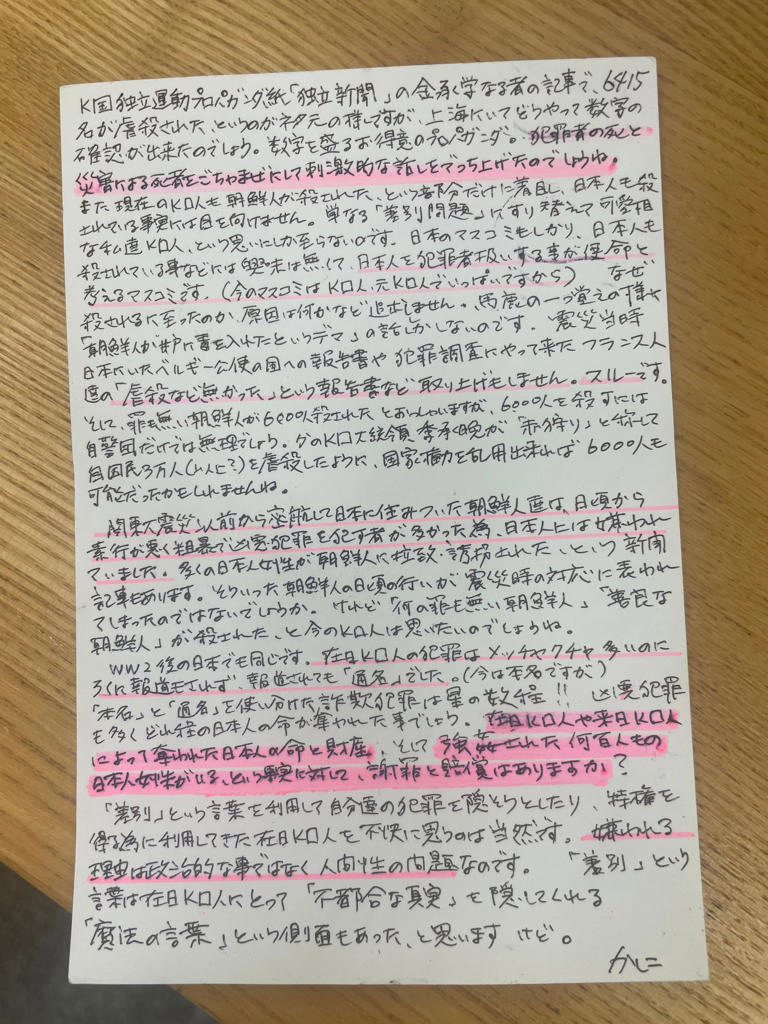 K国独立運動プロパガンダ紙「独立新聞」の金承学なる者の記事で、6415
名が虐殺された、というのがネタ元の様ですが、上海にいてどうやって数字の
確認が出来たのでしょう。数字を盛るお得意のプロパガンダ。犯罪者の死と
災害による死者をごちゃまぜにして刺激的な話しをでっち上げたのでしょうね。
また現在のKロ人も朝鮮人が殺された、という部分だけに着目し、日本人も殺
されている事実には目を向けません。単なる「差別問題」にすり替えて可愛相
な私達Kロ人、という思いにしか至らないのです。日本のマスコミもしかり、日本人も
殺されている事などには興味は無くて、日本人を犯罪者扱いする事が使命と
考えるマスコミです。(今のマスコミはKロ人、元Kロ人でいっぱいですから) なぜ
殺されるに至ったのか、原因は何かなど追求しません。馬鹿の一つ覚えの様に
「朝鮮人が井戸に毒を入れたというデマ」の話しかしないのです。震災当時
日本にいたベルギー公使の国への報告書や犯罪調査にやって来たフランス人
達の「虐殺など無かった」という報告書など取り上げもしません。スルーです。
そして、罪も無い朝鮮人が6000人殺されたとおっしゃいますが、6000人を殺すには
自警団だけでは無理でしょう。グのKロ大統領 李承晩が「赤狩り」と称して
自国民3万人(以上に?)を虐殺したように、国家権力を乱用出来れば6000人も
可能だったかもしれませんね。
関東大震災以前から密航して日本に住みついた朝鮮人達は、日頃から
素行が悪く粗暴で凶悪犯罪を犯す者が多かった為、日本人には嫌われ
ていました。多くの日本人女性が朝鮮人に拉致・誘拐された、という新聞
記事もあります。そういった朝鮮人の日頃の行いが震災時の対応に表われ
てしまったのではないでしょうか。けれど「何の罪も無い朝鮮人」「善良な
朝鮮人」が殺された、と今のKロ人は思いたいのでしょうね。
WW2後の日本でも同じです。在日Kロ人の犯罪はメッチャクチャ多いのに
ろくに報道もされず、報道されても「通名」でした。(今は本名ですが)
「本名」と「通名」を使い分けた詐欺犯罪は星の数程!! 凶悪犯罪
も多くどれ程の日本人の命が奪われた事でしょう。在日Kロ人や来日Kロ人
によって奪われた日本人の命と財産、そして強姦された何百人もの
日本人女性がいる、という事実に対して、謝罪と賠償はありますか?
「差別」という言葉を利用して自分達の犯罪を隠そうとしたり、特権を
得る為に利用してきた在日Kロ人を不快に思うのは当然です。嫌われる
理由は政治的な事ではなく人間性の問題なのです。「差別」という
言葉は在日Kロ人にとって「不都合な真実」を隠してくれる
「魔法の言葉」という側面もあった、と思いますけど。